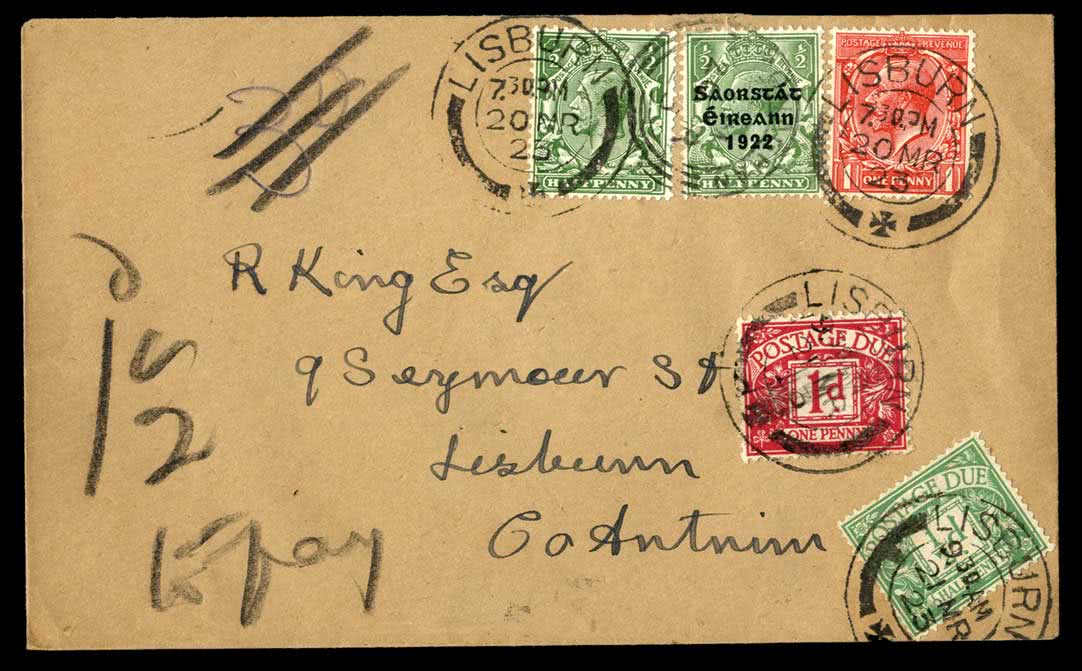 LISBURN
7.30PM
20 MR
23
½ ½
HALFPENNY
½ ½
Saorstát
Éireann
1922
HALFPENNY
POSTAGE REVENUE
1 ONE PENNY 1
LISBURN
7.30PM
20 MR
23
R King Esq
9 Seymour St
Lisburn
Co Antrim
LISBURN
POSTAGE DUE
1d
ONE PENNY
POSTAGE DUE
HALFPENNY
LISBURN
9.30AM
21 MR
23
1
2
to pay